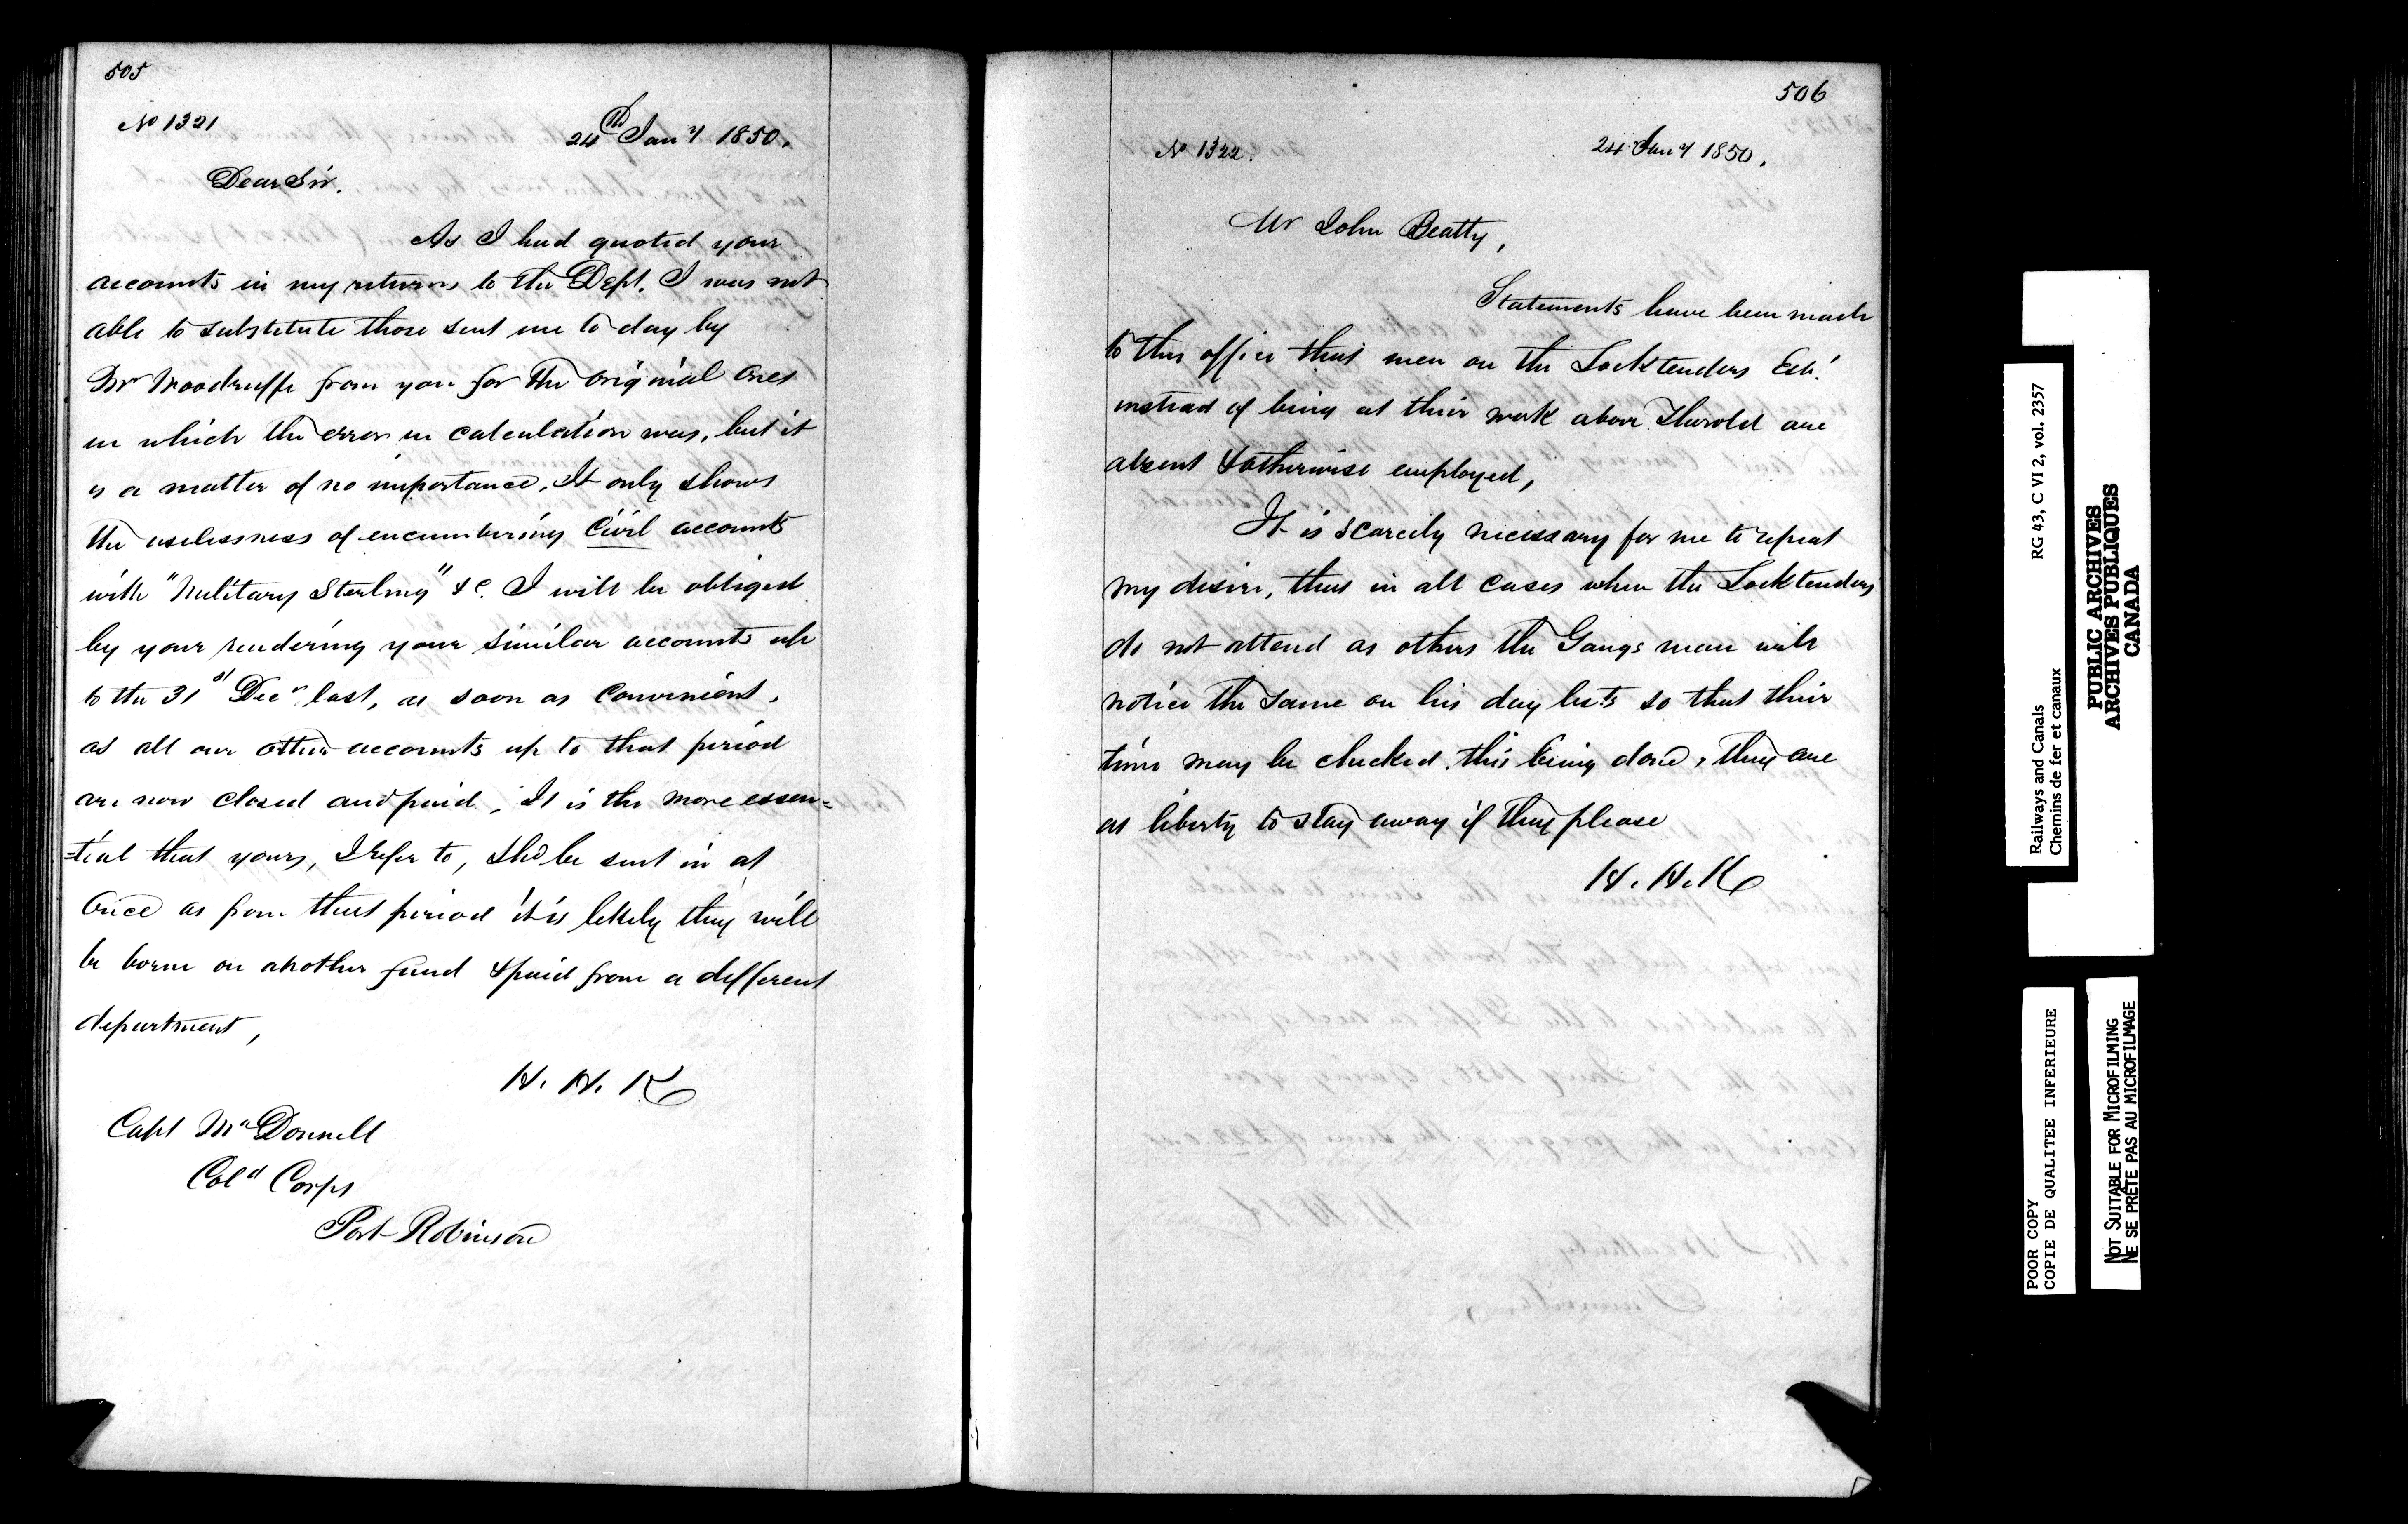 505
No 1321
24th Jany 1850.
Dear Sir.
As I had quoted your
accounts in my returns to the Dept. I was not
able to substitute those sent me to day by
Mr Woodruffe from you for the original ones
in which the error in calculation was, but it
is a matter of no importance, It only shows
the uselessness of encumbering Civil accounts
with "Military Sterling" &c. I will be obliged
by your rendering your similar accounts up
to the 31st Decr last, as soon as convenient,
as all our other accounts up to that period
are now closed and paid, It is the more essen=
=tial that yours, I refer to, shd be sent in at
once as from that period it is likely they will
be borne on another fund & paid from a different
department,
H. H. K
Capt McDonnell
Cold Corps
Port Robinson
506
No 1322.
24 Jany 1850.
Mr John Beatty,
Statements have been made
to this office that men on the Locktenders Est.
instead of being at their work above Thorold are
absent & otherwise employed,
It is scarcely necessary for me to repeat
my desire, that in all cases when the Locktenders
do not attend as others the Gangs man will
notice the same on his day lists so that their
time may be checked, this being done, they are
at liberty to stay away if they please
H. H. K
Railways and Canals
Chemins de fer et canaux
RG 43, C VI 2, vol. 2357
PUBLIC ARCHIVES
ARCHIVES PUBLIQUES
CANADA
POOR COPY
COPIE DE QUALITEE INFERIEURE
NOT SUITABLE FOR MICROFILMING
NE SE PRÊTE PAS AU MICROFILMAGE